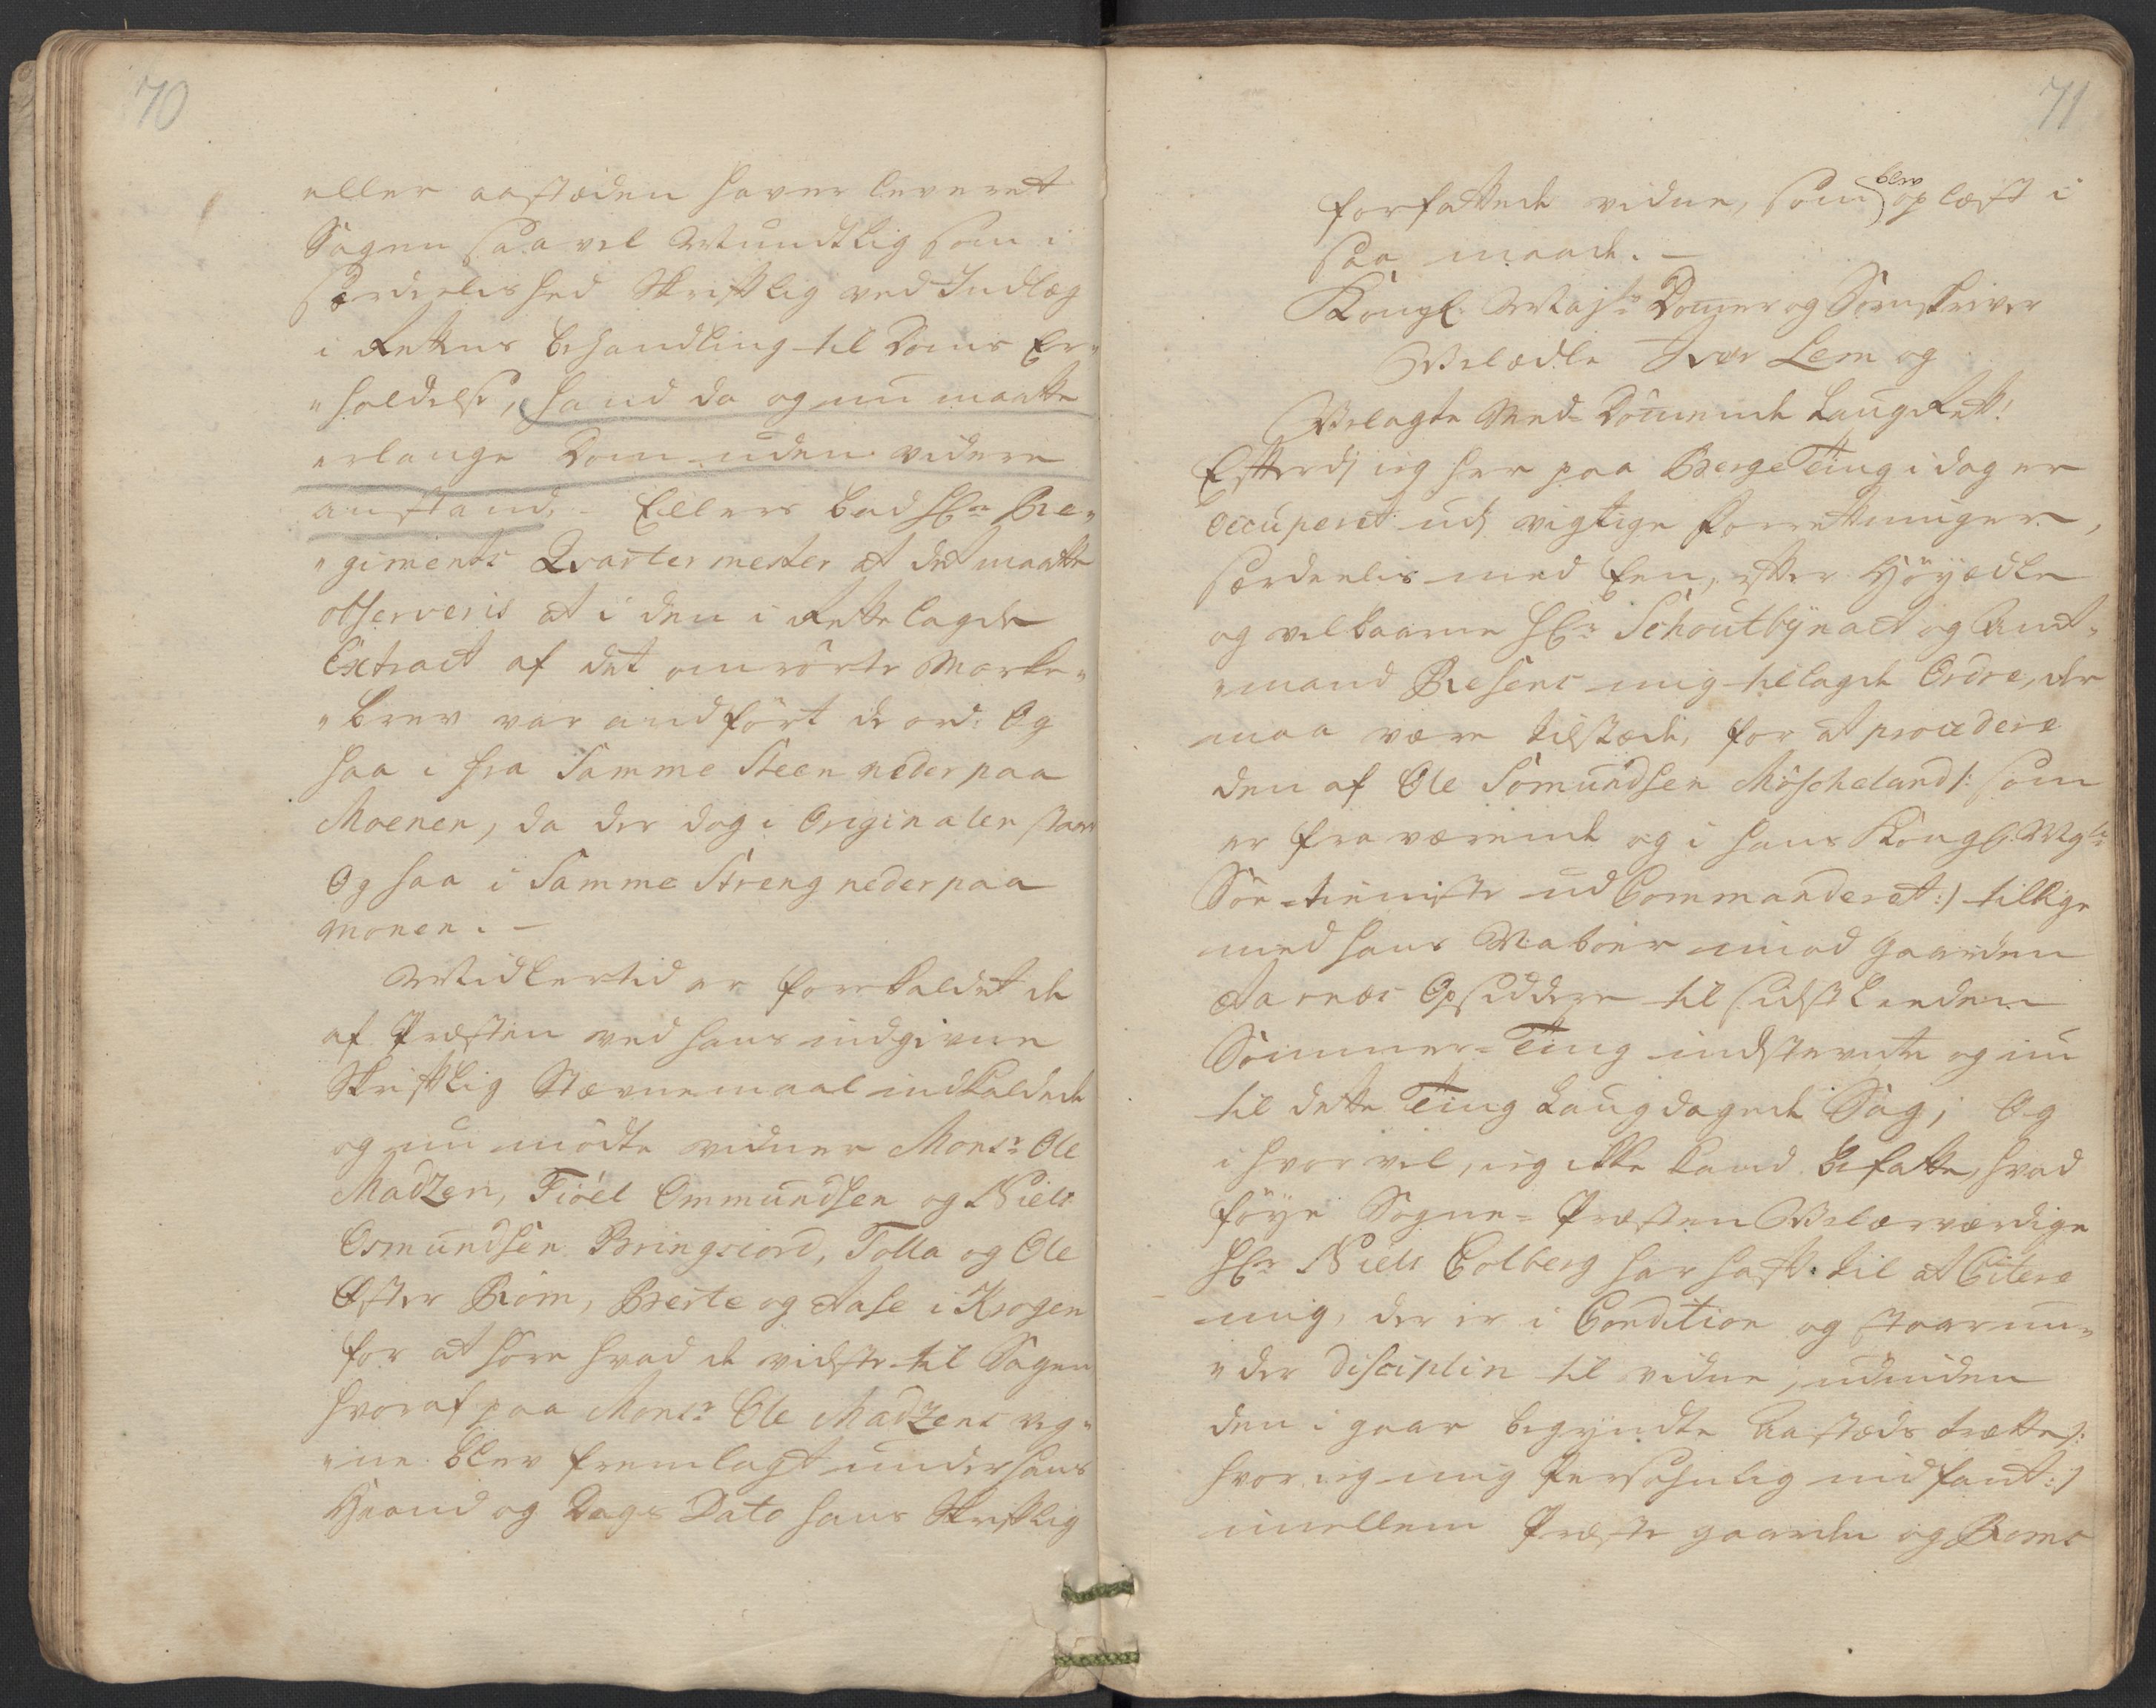 70
eller aastæden haver leveret
Sagen saavel Mundtlig som i
særdelished Skriftlig ved Indlæg
i Rettens behandling til Doms Er„
„holdelse, hand da og nu maatte
erlange Dom uden videre
anstand, - Ellers bad Hr: Re„
„giments Qvartermester at det maatte
observeris at i den i Rette lagde
Extract af det omrørte Marke„
„brev var andført de ord: Og
saa i fra Samme Steen neder paa
Moenen, da der dog i Originalen staar
Og saa i Samme Streng neder paa
monen. -
Midlertid er forekaldet de
af Præsten ved hans indgivne
Skriftlig Stævnemaal indkaldede
og nu mødte vidner Monsr: Ole
Madzen, Fiöel Ommundsen og Niels
Osmundsen Bringsiord, Tolla og Ole
Øster Röm, Berte og Aase i Krogen
for at høre hvad de vidste til Sagen
hvoraf paa Monsr: Ole Madzens veg„
„ne blev fremlagt under hans
Haand og Dags Dato hans Skriftlig
71
forfattede vidne, som blev oplæst i
saa maade. -
Kongl: Majts: Dommer og Sorenskriver
Velædle Iver Lem og
Velagte Med-Dömmende Laugrett!
Efterdj ieg her paa Berge Ting i dag er
occuperet udj vigtige Forrettninger,
særdeelis med Een, efter Höyædle
og velbaarne Hr: Schoutbynact og Amt„
„mand Resens mig tillagde Ordre, der
maa være tilstæde, for at procedere
den af Ole Tomundsen Möscheland /: som
er fraværende og i hans Kongl: Mayts:
Söe-tieniste ud Commanderet:/ tillige
med hans Naboer imod Gaarden
Aarnes Opsiddere til sidstleeden
Sommer-Ting indstevnte og nu
til dette Ting Laugdagede Sag; Og
i hvor vel, ieg ikke kand befatte, hvad
föye Sogne-Præsten Velærværdige
Hr: Niels Colberg har haft til at Citere
mig, der er i Condition og staar un„
„der disciplin til vidne, udinden
den i gaar begyndte Aastæds trette /:
hvor ieg mig Persohnlig indfant:/
imellem Præstegaarden og Roms